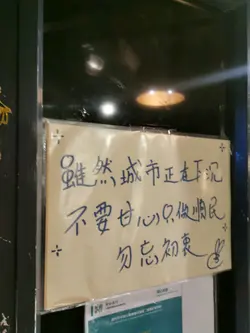 雖然城市正在下沉
不要甘心只做順民
勿忘初衷